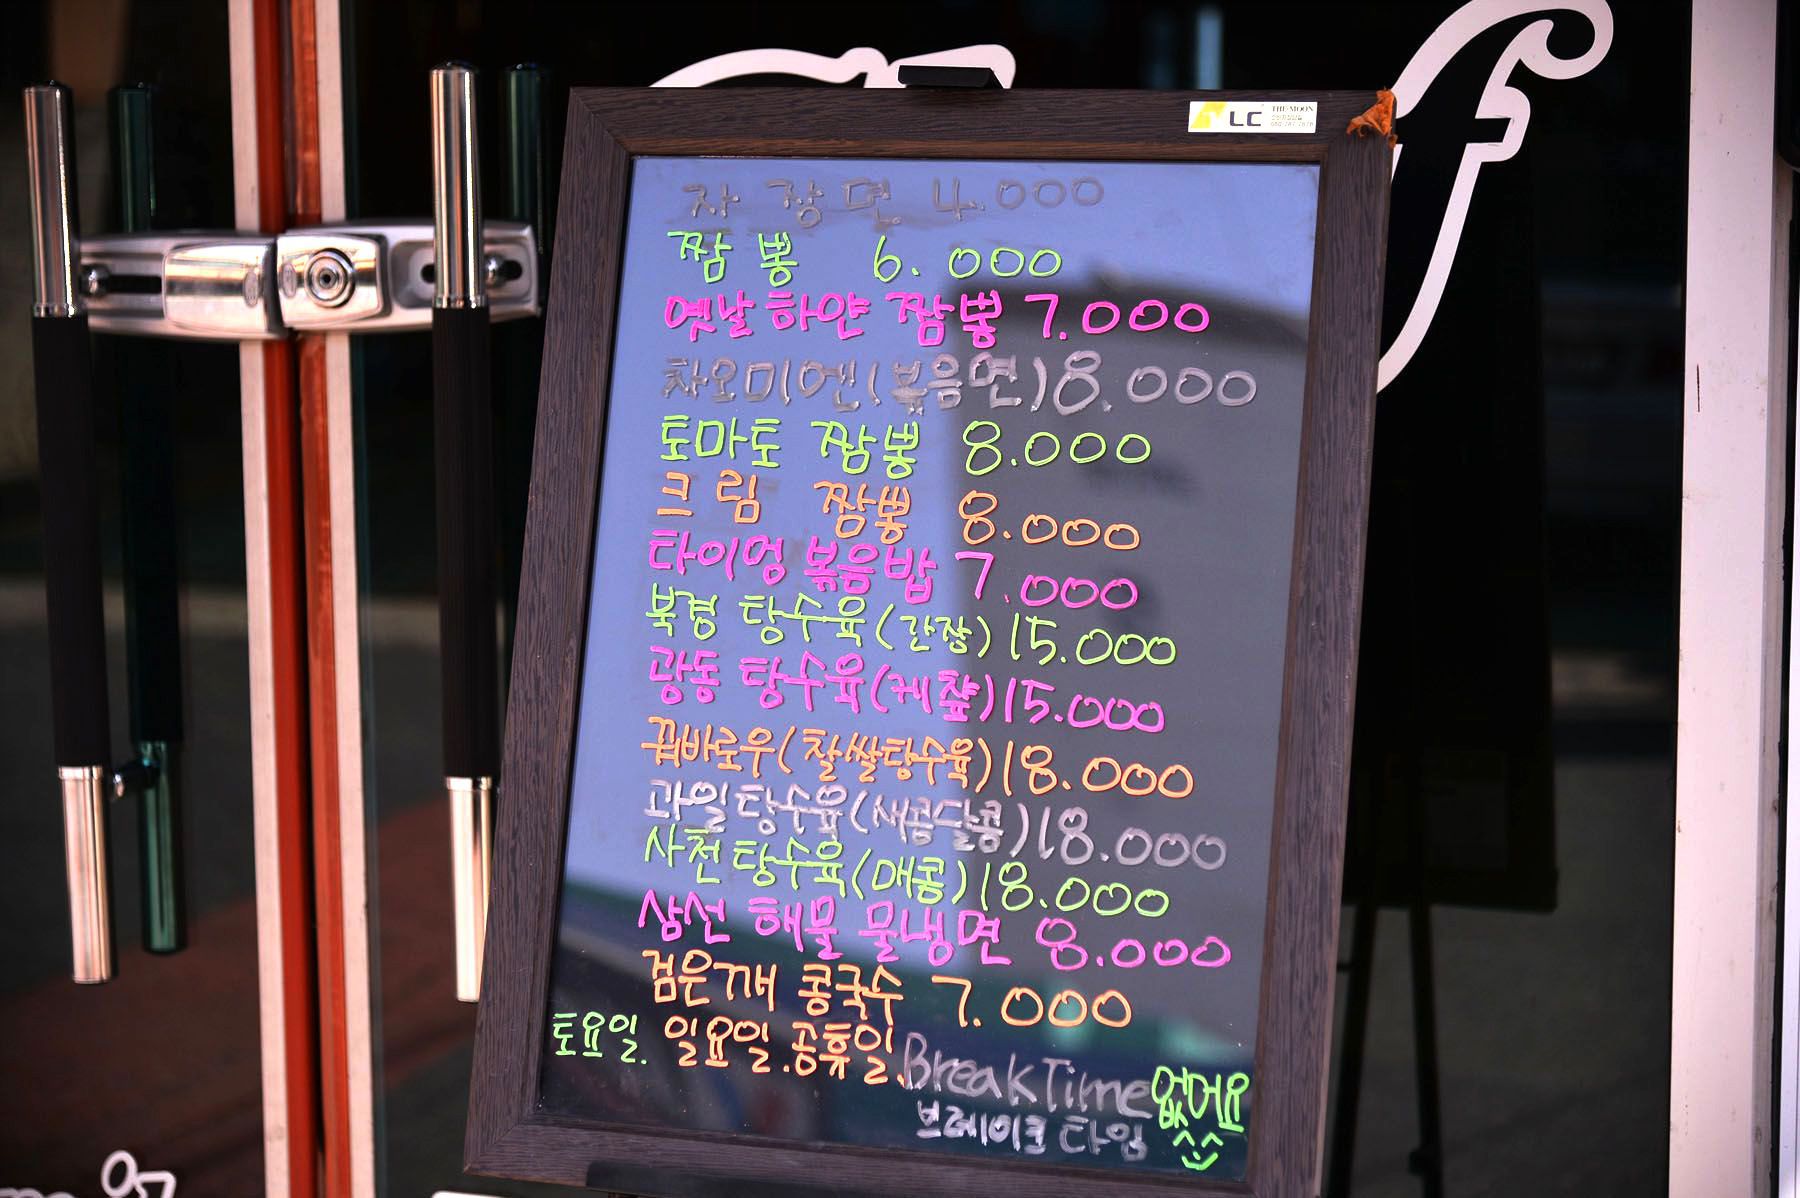 LC THE MOON
자장면 4.000
짬뽕 6.000
옛날 하얀 짬뽕 7.000
차오미엔(볶음면)8.000
토마토 짬뽕 8.000
크림 짬뽕 8.000
타이멍 볶음밥 7.000
북경 탕수육(간장)15.000
광동 탕수육(케챺)15.000
꿔바로우(찹쌀탕수육)18.000
과일탕수육(새콤달콤)18.000
사천탕수육(매콤)18.000
삼선 해물 물냉면 8.000
검은깨 콩국수 7.000
토요일. 일요일.공휴일.BreakTime없어요
브레이크 타임 ^^